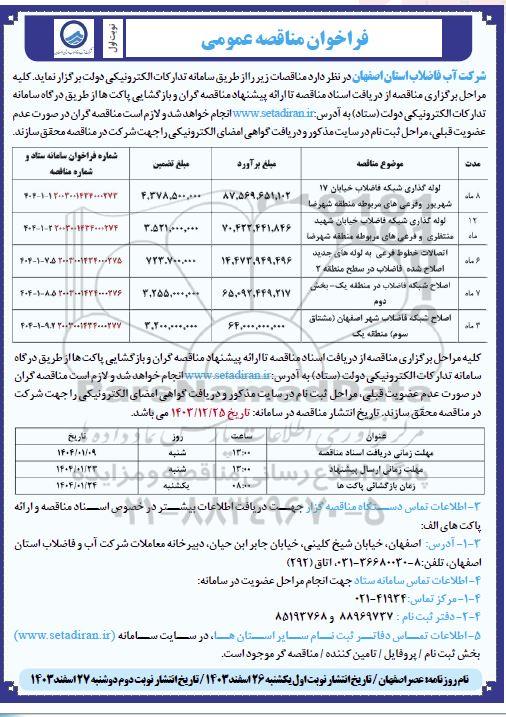 فراخوان مناقصه عمومی
نوبت اول
شرکت آب فاضلاب استان اصفهان در نظر دارد مناقصات زیر را از طریق سامانه تدارکات الکترونیکی دولت برگزار نماید. کلیه
مراحل برگزاری مناقصه از دریافت اسناد مناقصه تا ارائه پیشنهاد مناقصه گران و بازگشایی پاکت ها از طریق درگاه سامانه
تدارکات الکترونیکی دولت (ستاد) به آدرس: www.setadiran.ir انجام خواهد شد و لازم است مناقصه گران در صورت عدم
عضویت قبلی، مراحل ثبت نام در سایت مذکور و دریافت گواهی امضای الکترونیکی را جهت شرکت در مناقصه محقق سازند.
مدت | موضوع مناقصه | مبلغ برآورد | مبلغ تضمین | شماره فراخوان سامانه ستاد و شماره مناقصه
۸ ماه | لوله گذاری شبکه فاضلاب خیابان ۱۷ شهریور وفرعی های مربوطه منطقه شهرضا | ۸۷,۵۶۹,۶۵۱,۱۰۲ | ۴,۳۷۸,۵۰۰,۰۰۰ | ۲۰۰۳۰۰۱۴۳۴۰۰۰۲۷۳ ۴۰۴-۱-۱
۱۲ ماه | لوله گذاری شبکه فاضلاب خیابان شهید منتظری و فرعی های مربوطه منطقه شهرضا | ۷۰,۴۲۲,۴۴۱,۸۴۶ | ۳,۵۲۱,۰۰۰,۰۰۰ | ۲۰۰۳۰۰۱۴۳۴۰۰۰۲۷۴ ۴۰۴-۱-۲
۶ ماه | اتصالات خطوط فرعی به لوله های جدید اصلاح شده فاضلاب در سطح منطقه ۲ | ۱۴,۴۷۳,۹۴۹,۴۹۶ | ۷۲۳,۷۰۰,۰۰۰ | ۲۰۰۳۰۰۱۴۳۴۰۰۰۲۷۵ ۴۰۴-۱-۷.۵
۷ ماه | اصلاح شبکه فاضلاب در منطقه یک-بخش دوم | ۶۵,۰۹۲,۴۴۹,۲۱۷ | ۳,۲۵۵,۰۰۰,۰۰۰ | ۲۰۰۳۰۰۱۴۳۴۰۰۰۲۷۶ ۴۰۴-۱-۸.۵
۳ ماه | اصلاح شبکه فاضلاب شهر اصفهان (مشتاق سوم) منطقه یک | ۶۴,۰۰۰,۰۰۰,۰۰۰ | ۳,۲۰۰,۰۰۰,۰۰۰ | ۲۰۰۳۰۰۱۴۳۴۰۰۰۲۷۷ ۴۰۴-۱-۹.۲
کلیه مراحل برگزاری مناقصه از دریافت اسناد مناقصه تا ارائه پیشنهاد مناقصه گران و بازگشایی پاکت ها از طریق درگاه
سامانه تدارکات الکترونیکی دولت (ستاد) به آدرس: www.setadiran.ir انجام خواهد شد و لازم است مناقصه گران
در صورت عدم عضویت قبلی، مراحل ثبت نام در سایت مذکور و دریافت گواهی امضای الکترونیکی را جهت شرکت
در مناقصه محقق سازند. تاریخ انتشار مناقصه در سامانه: تاریخ ۱۴۰۳/۱۲/۲۵ می باشد.
عنوان | ساعت | روز | تاریخ
مهلت زمانی دریافت اسناد مناقصه | ۱۳:۰۰ | شنبه | ۱۴۰۴/۰۱/۰۹
مهلت زمانی ارسال پیشنهاد | ۱۳:۰۰ | شنبه | ۱۴۰۴/۰۱/۲۳
زمان بازگشائی پاکت ها | ۰۸:۰۰ | یکشنبه | ۱۴۰۴/۰۱/۲۴
۳-اطلاعات تماس دستگاه مناقصه گزار جهت دریافت اطلاعات بیشتر در خصوص اسناد مناقصه و ارائه
پاکت های الف:
۳-۱- آدرس: اصفهان، خیابان شیخ کلینی، خیابان جابر ابن حیان، دبیرخانه معاملات شرکت آب و فاضلاب استان
اصفهان، تلفن:۸-۳۶۶۸۰۰۳۰-۰۳۱، اتاق (۲۹۲)
۴-اطلاعات تماس سامانه ستاد جهت انجام مراحل عضویت در سامانه:
۴-۱- مرکز تماس: ۴۱۹۳۴-۰۲۱
۴-۲- دفتر ثبت نام : ۸۸۹۶۹۷۳۷ و ۸۵۱۹۳۷۶۸
۵-اطلاعات تماس دفاتر ثبت نام سایر استان ها، در سایت سامانه (www.setadiran.ir)
بخش ثبت نام / پروفایل / تامین کننده / مناقصه گر موجود است.
نام روزنامه: عصر اصفهان / تاریخ انتشار نوبت اول یکشنبه ۲۶ اسفند ۱۴۰۳ / تاریخ انتشار نوبت دوم دوشنبه ۲۷ اسفند ۱۴۰۳
۰۲۱-۸۸۳۴۹۶۷۰-۵